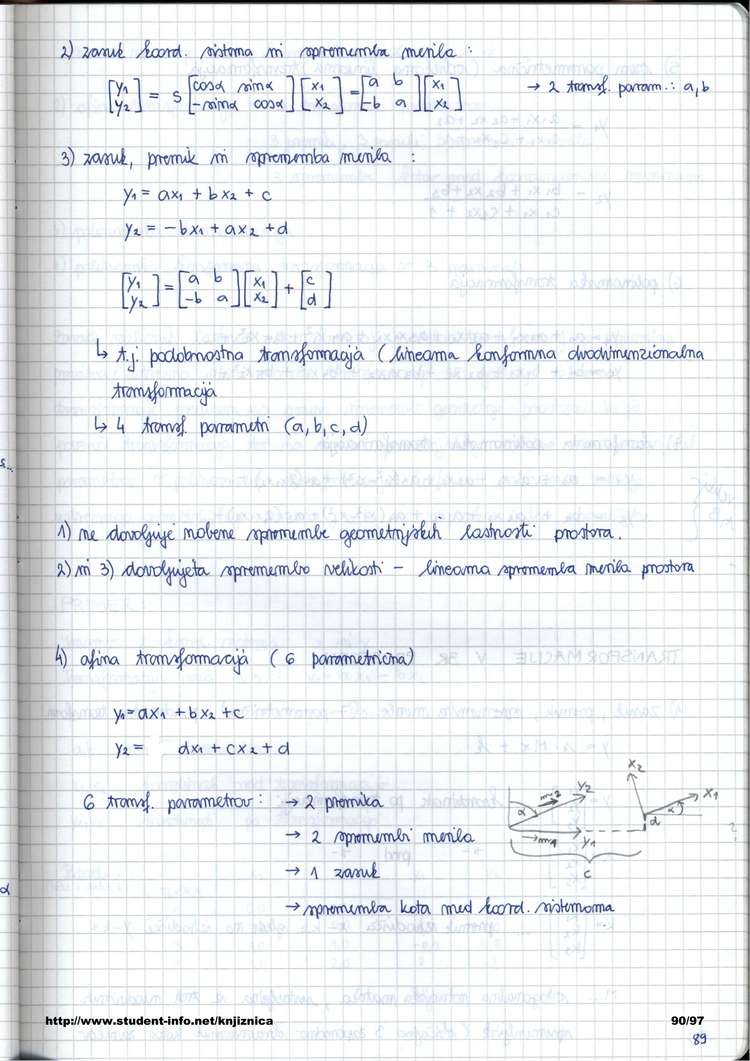 2) zasuk koord. sistema in sprememba merila :
[y1 y2] = s [cosα sinα -sinα cosα] [x1 x2] = [a b -b a] [x1 x2] → 2 transf. param.: a, b
3) zasuk, premik in sprememba merila :
y1 = ax1 + bx2 + c
y2 = -bx1 + ax2 + d
[y1 y2] = [a b -b a] [x1 x2] + [c d]
↳ t.j. podobnostna transformacija (linearna konformna dvodimenzionalna
transformacija
↳ 4 transf. parametri (a, b, c, d)
1) ne dovoljuje nobene spremembe geometrijskih lastnosti prostora.
2) in 3) dovoljujeta spremembo velikosti - linearna sprememba merila prostora
4) afina transformacija (6 parametrična)
y1 = ax1 + bx2 + c
y2 = dx1 + cx2 + d
6 transf. parametrov : → 2 premika
→ 2 spremembi merila
→ 1 zasuk
→ sprememba kota med koord. sistemoma
x2
x1
α
d
y2
m2
α
m1
y1
c
http://www.student-info.net/knjiznica
90/97
89